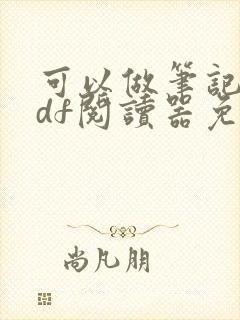 可以做筆記
df閱讀器免
尚凡朋